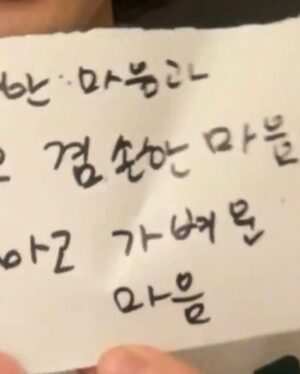 한 마음과
겸손한 마음
가벼운
마음